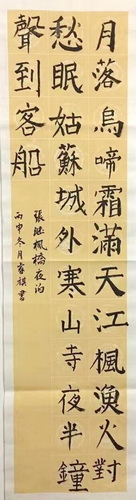 月落烏啼霜滿天江楓漁火對
愁眠姑蘇城外寒山寺夜半鐘
聲到客船
張继楓橋夜泊
丙申冬月祺書